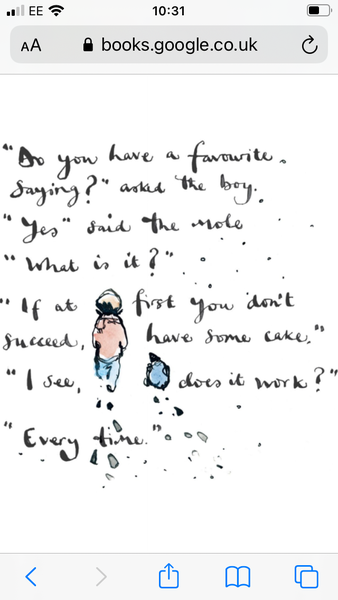 EE 10:31
AA books.google.co.uk
"Do you have a favourite
saying?" asked the boy.
"Yes" said the mole
"What is it?"
"If at first you don't
succeed, have some cake."
"I see, does it work?"
"Every time."